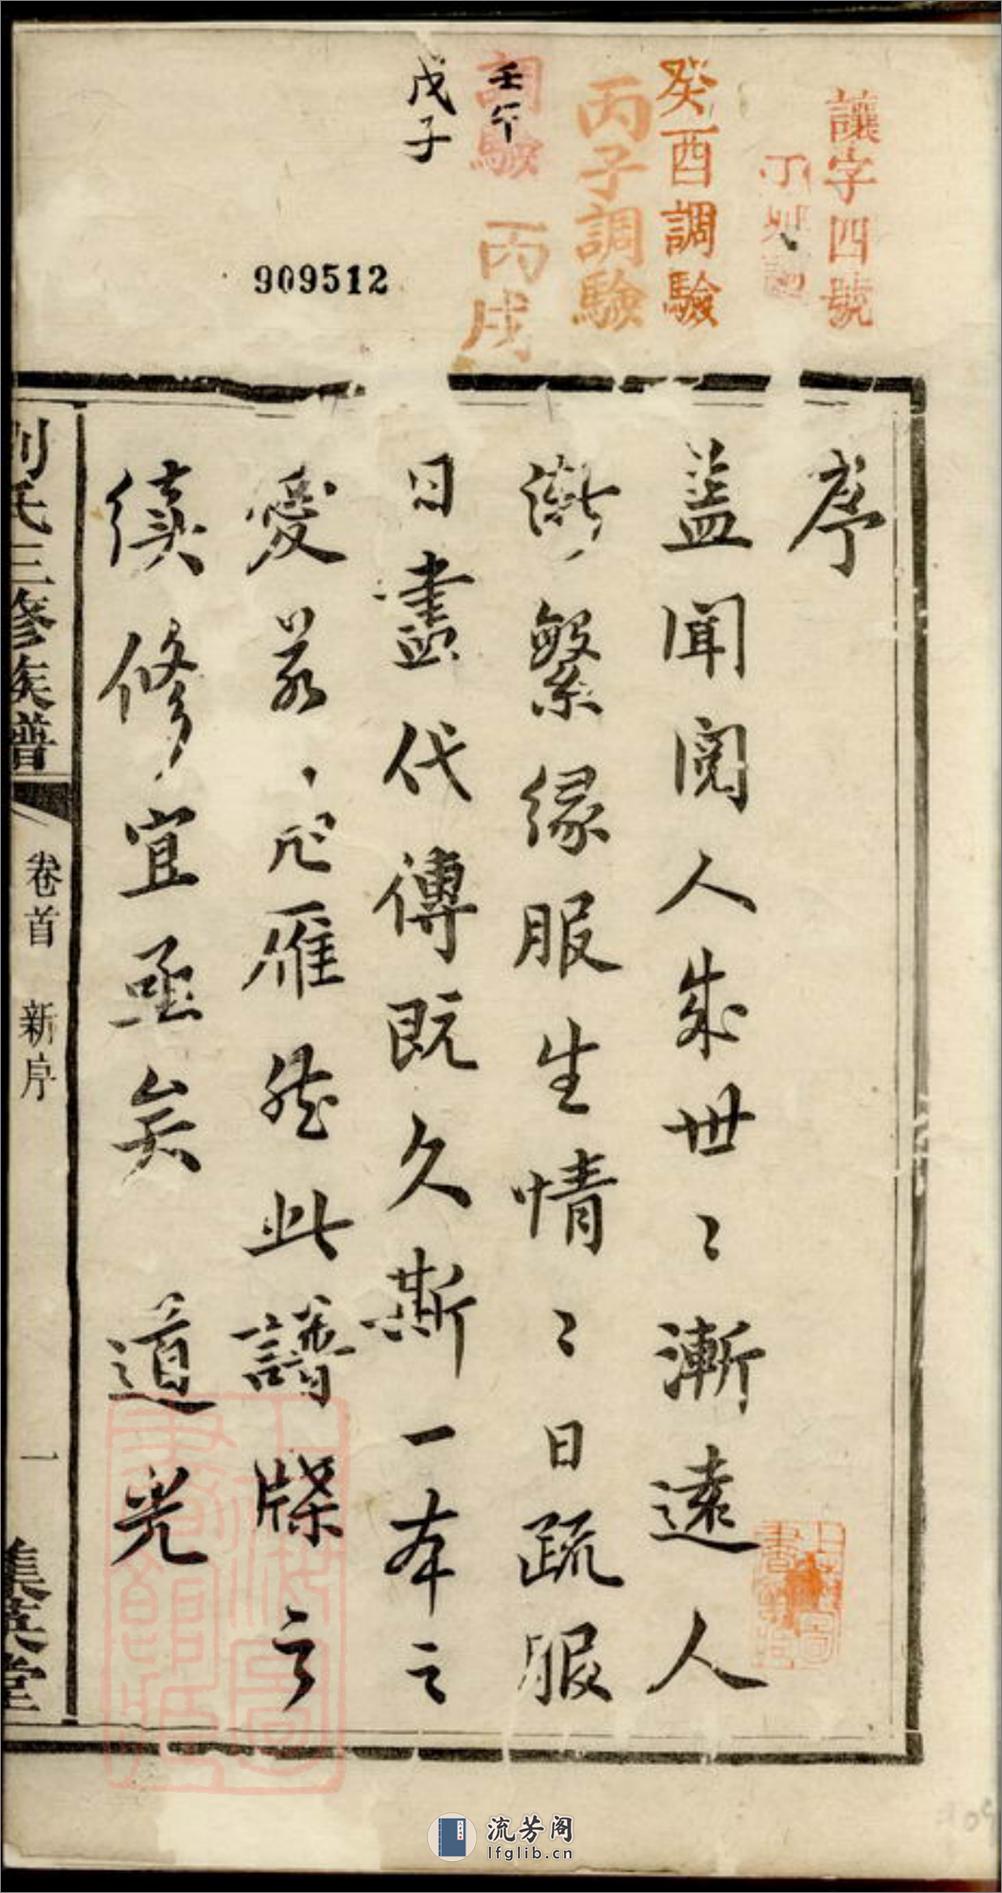 讓字四號
丁卯調
癸酉調驗
丙子調驗
調驗 丙戌
壬午
戊子
909512
序
蓋聞閱人成世〻漸遠人
漸繁緣服生情〻日疏服
日盡代傳既久澌一本之
愛若
雁然此譜牒之
續修宜亟矣 道光
劉氏三修族譜
卷首 新序
一
集英堂
流芳阁
lfglib.cn